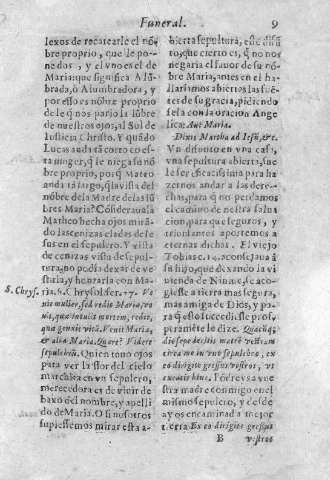 Funeral. 9
lexos de recatearle el nõ-
bre proprio, que le po-
ne dos, y el vno es el de
Maria: que significa Alũ-
brada, ò Alumbradora, y
por esso es nõbre proprio
de la q̃ nos pario la lũbre
de nuestros ojos, al Sol de
Iusticia Christo. Y quãdo
Lucas anda tã corto cõ es-
ta muger, q̃ le niega su nõ
bre proprio, porq̃ Mateo
anda tã largo, q̃ la vista del
nõbre de la Madre de las
bres Maria? Cõsiderauala
Matheo hecha ojos mirã-
do las cenizas eladas de Ie-
sus en el sepulcro. Y vista
de cenizas vista de sepul-
tura, no podia dexar de ve-
stirla, y honrarla con Ma-
S. Chrys. ria. S. Chrysol. ser. 74. Ve-
nit mulier, sed redit Maria, ve-
nit, quæ intulit mortem, redit,
quæ genuit vitã. Venit Maria,
& alia Maria. Quare? Videre
sepulchrũ. Quien tuuo ojos
para ver la flor del cielo
marchita en vn sepulcro,
merecedora es de viuir de
baxo del nombre, y apelli
do de Maria. O si nosotros
supiessemos mirar esta a-
bierta sepultura, este difũ
to, que cierto es, q̃ no nos
negaria el fauor de su nõ-
bre Maria, antes en el ha-
llariamos abiertas las fuẽ-
tes de su gracia, pidiendo
sela con la oracion Ange-
lica: Aue Maria.
Dixit Martha ad Iesũ, &c.
Vn difunto en vna casa,
vna sepultura abierta, sue
le ser eficacissima para ha-
zernos andar a las dere-
chas, para q̃ no perdamos
el camino de nuestra salua
cion, para que seguros, y
triunfantes aportemos a
eternas dichas. El viejo
Tobias c. 14. aconsejaua à
su hijo, que dexando la vi
uienda de Niniue, se aco-
giesse a tierra mas segura,
mas amiga de Dios, y pa-
ra q̃ esto sucediesse prof-
peramẽte le dize. Quacũq;
die sepelieritis matrẽ vestram
circa me in vno sepulchro, ex
eo dirigite gressus vestros, vt
exeatis hinc. Poned essa vue
stra madre conmigo en el
mismo sepulcro, y desde
ay os encaminad a mejor
tierra Ex eo dirigite gressus
B vestros